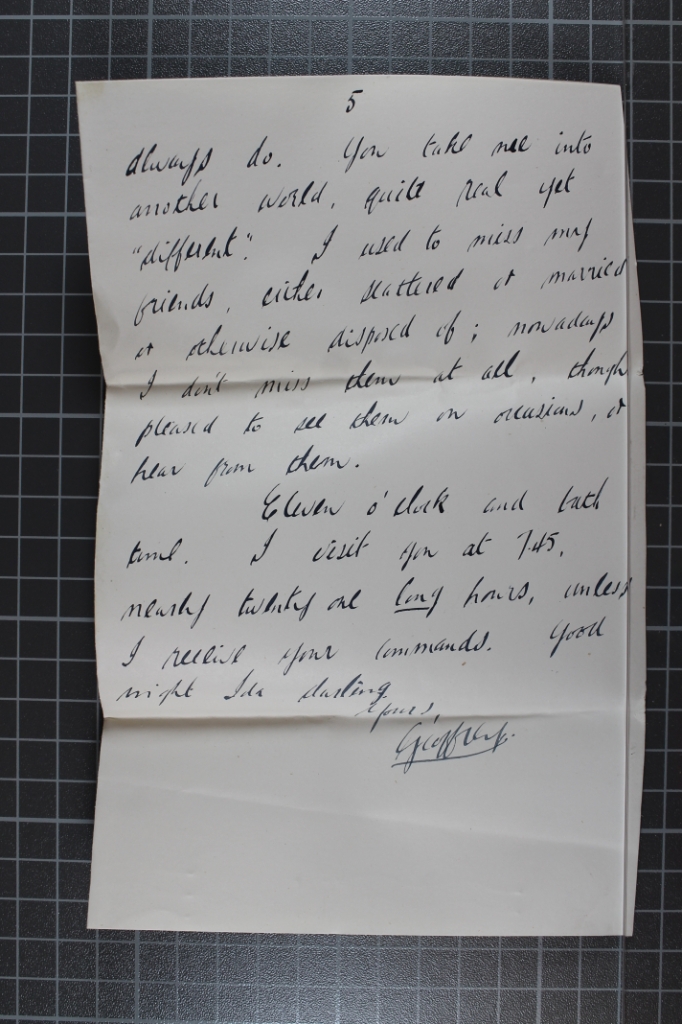 5
always do. You take me into
another world, quite real yet
"different". I used to miss my
friends, either scattered or married
or otherwise disposed of; nowadays
I don't miss them at all, though
pleased to see them on occasions, or
hear from them.
Eleven o'clock and bath
time. I visit you at 7.45,
nearly twenty one long hours, unless
I receive your commands. Good
night Ida darling
Yours,
Geoffrey.